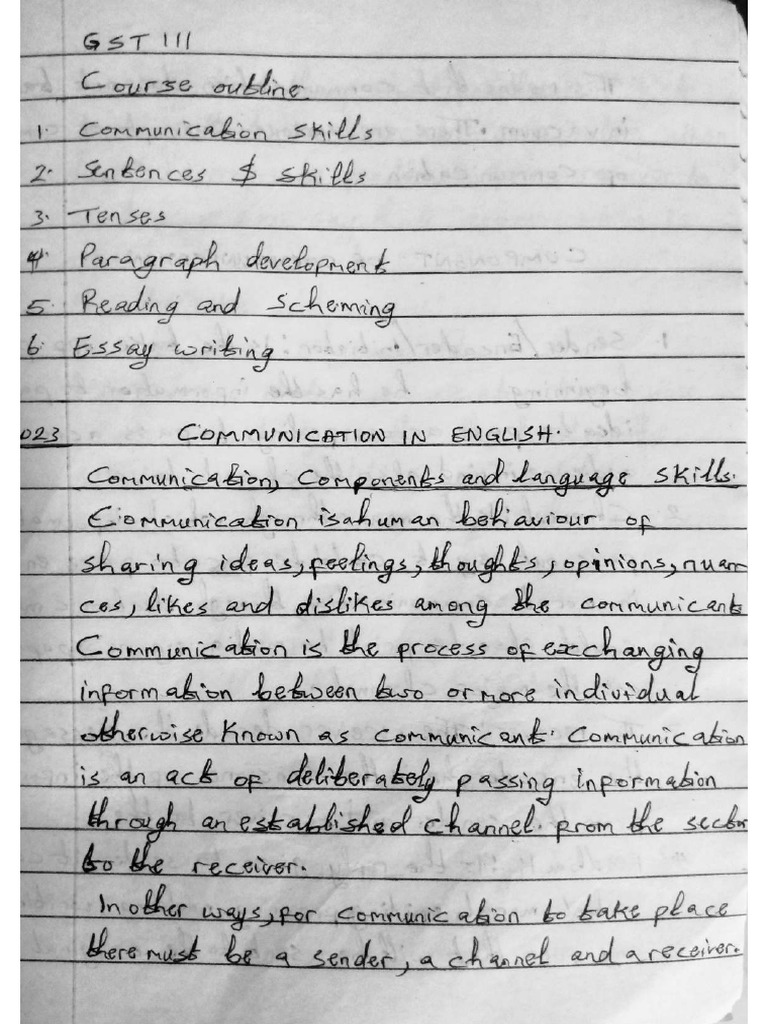 GST 111
Course outline
1. Communication skills
2. Sentences & skills
3. Tenses
4. Paragraph development
5. Reading and Scheming
6. Essay writing
023 COMMUNICATION IN ENGLISH.
Communication, Components and language skills.
Communication is a human behaviour of
sharing ideas, feelings, thoughts, opinions, nuan
ces, likes and dislikes among the communicants
Communication is the process of exchanging
information between two or more individual
otherwise known as communicant. Communication
is an act of deliberately passing information
through an established channel from the sector
to the receiver.
In other ways, for communication to take place
there must be a sender, a channel and a receiver.